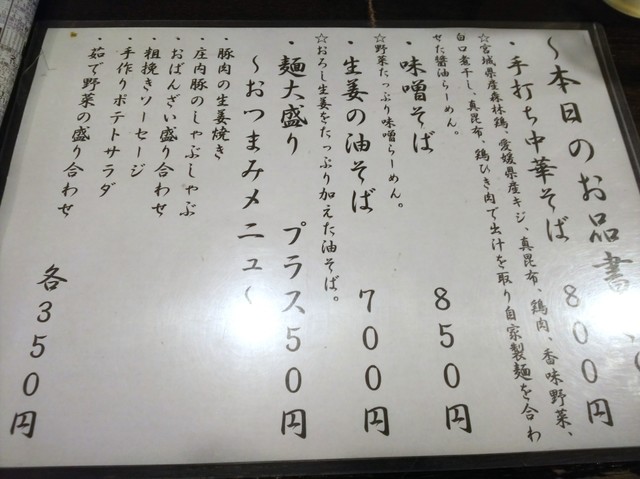 ～本日のお品書
・手打ち中華そば　８００円
☆宮城県産森林鶏、愛媛県産キジ、真昆布、鶏肉、香味野菜、
白口煮干し、真昆布、鶏ひき肉で出汁を取り自家製麺を合わ
せた醤油らーめん。
・味噌そば　８５０円
☆野菜たっぷり味噌らーめん。
・生姜の油そば　７００円
☆おろし生姜をたっぷり加えた油そば。
・麺大盛り　プラス５０円
～おつまみメニュ～
・豚肉の生姜焼き
・庄内豚のしゃぶしゃぶ
・おばんざい盛り合わせ
・粗挽きソーセージ
・手作りポテトサラダ
・茹で野菜の盛り合わせ
各３５０円